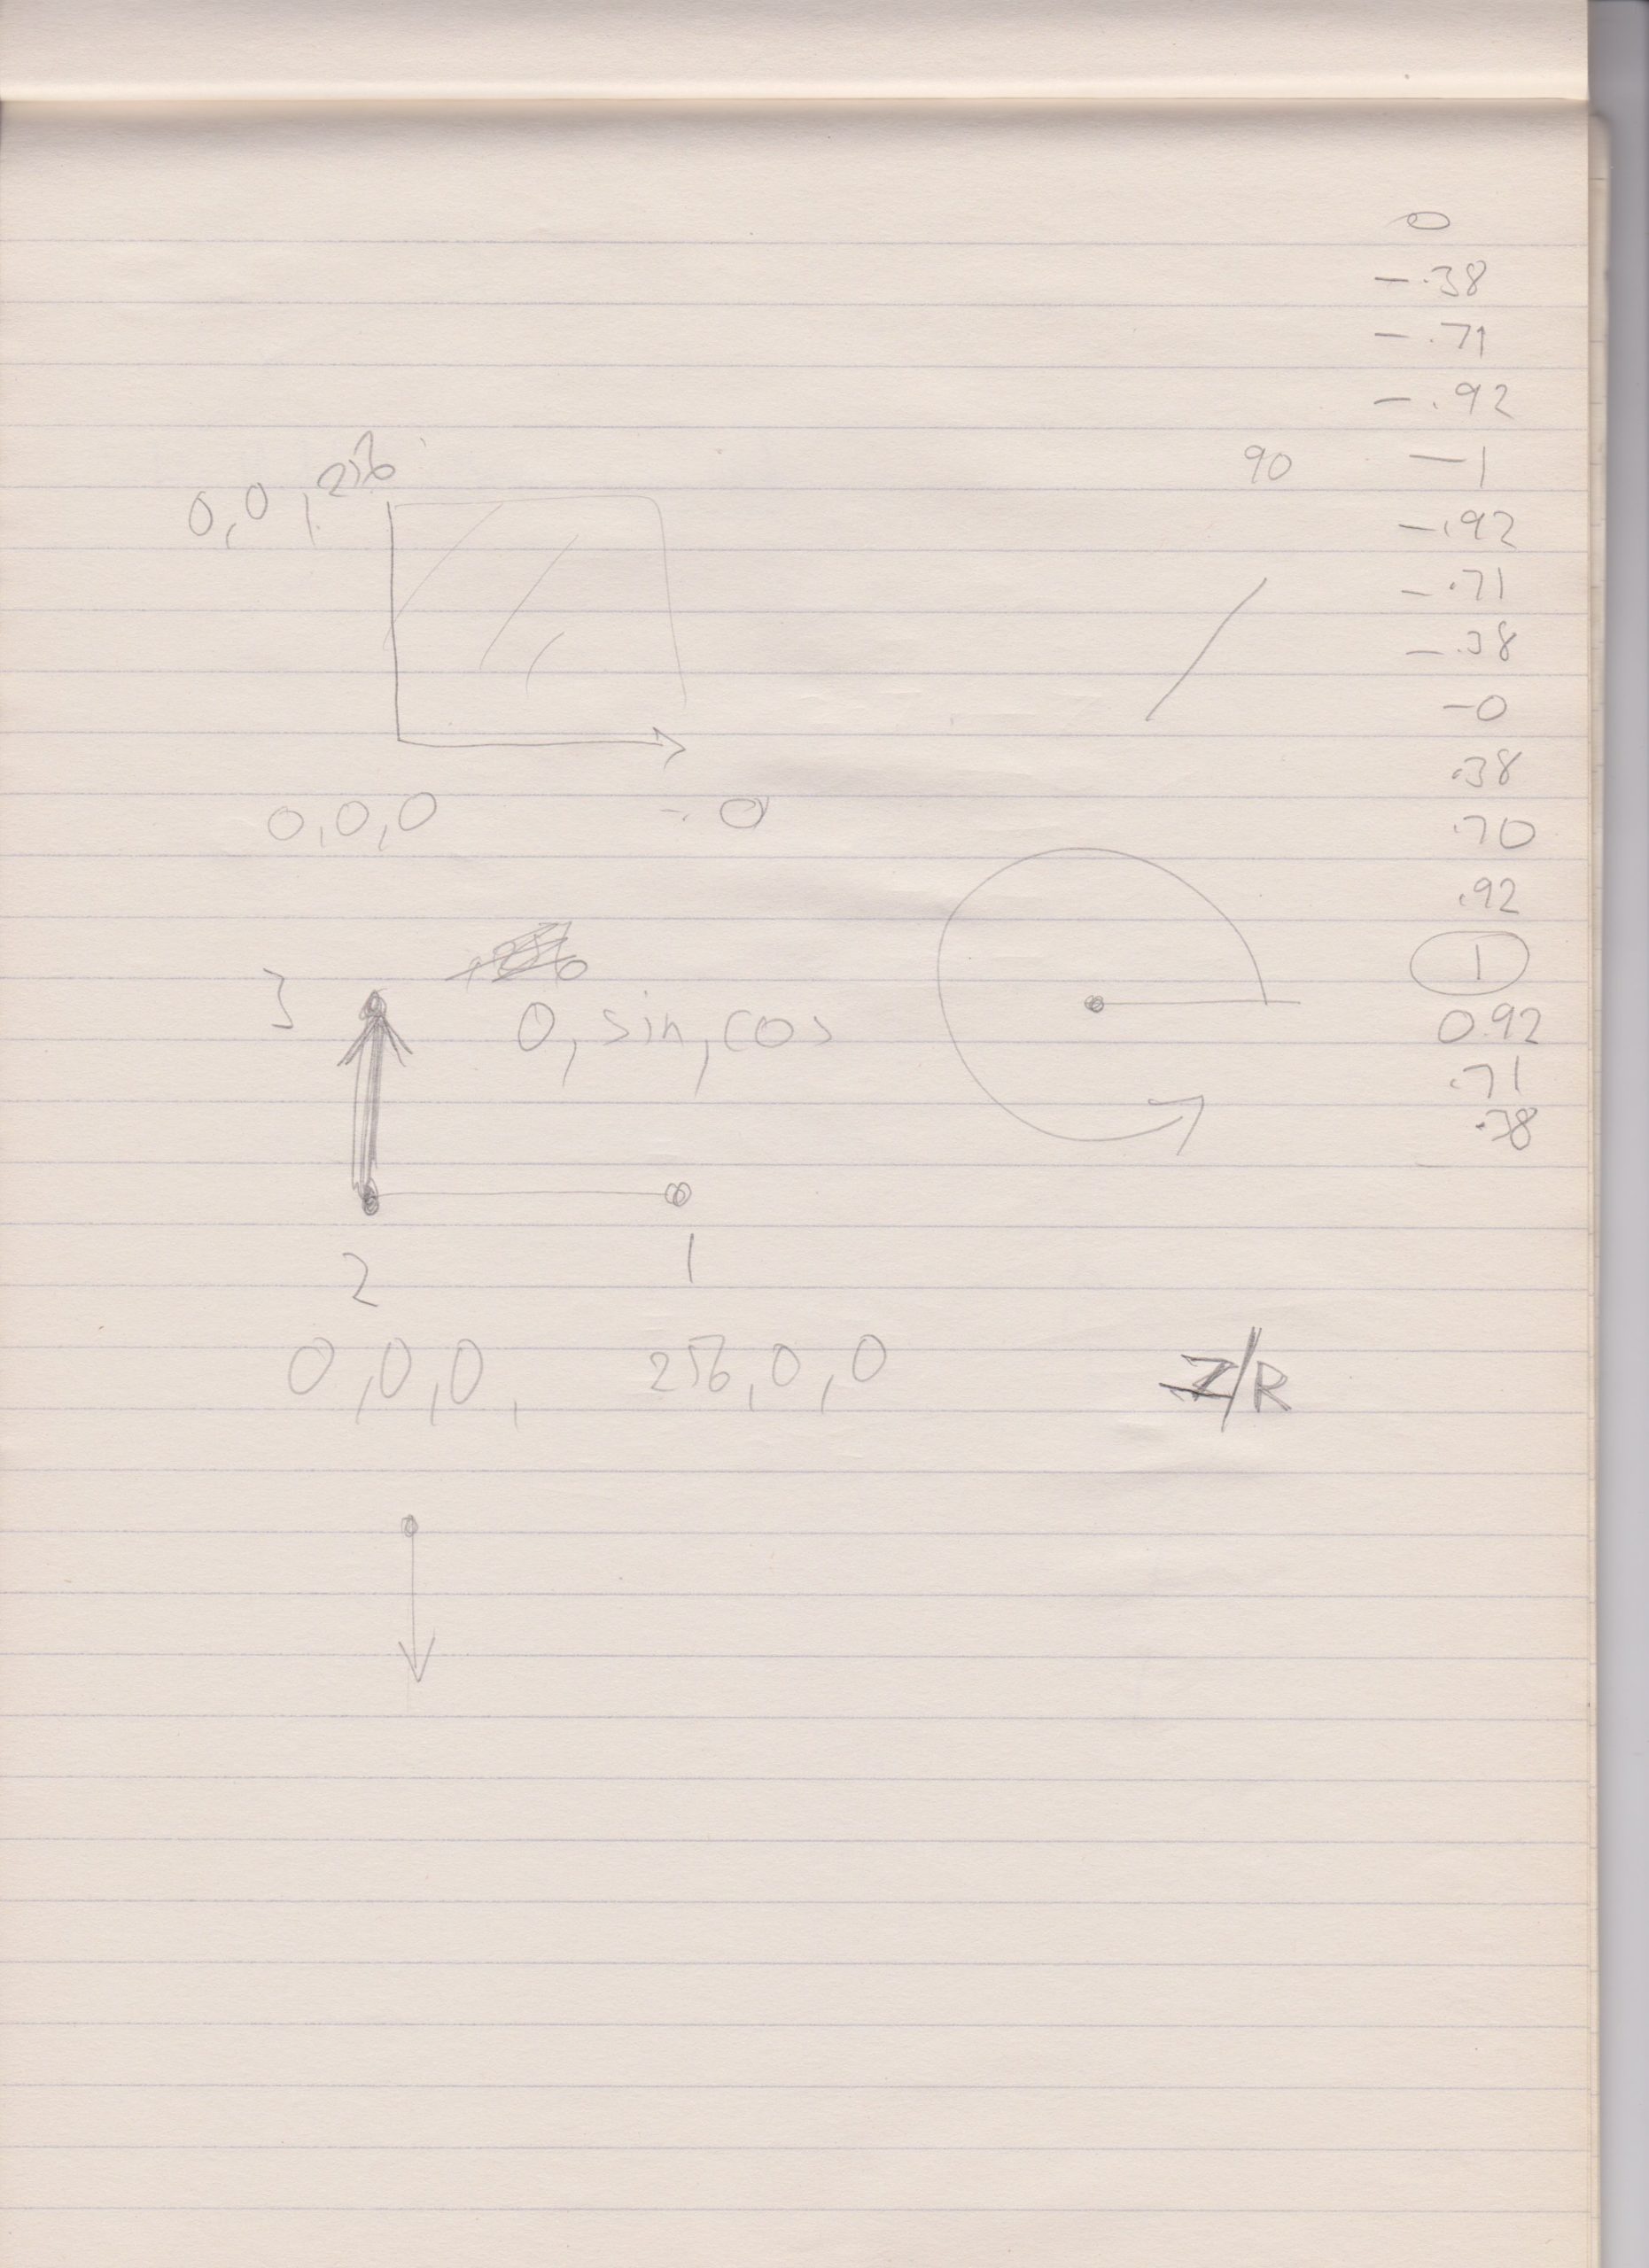 0
-.38
-.71
-.92
90 -1
0,0,256
-.92
-.71
-.38
-0
.38
0,0,0
.70
.92
1
3
0, sin, cos
0.92
.71
.38
2 1
0,0,0, 256,0,0
Z/R